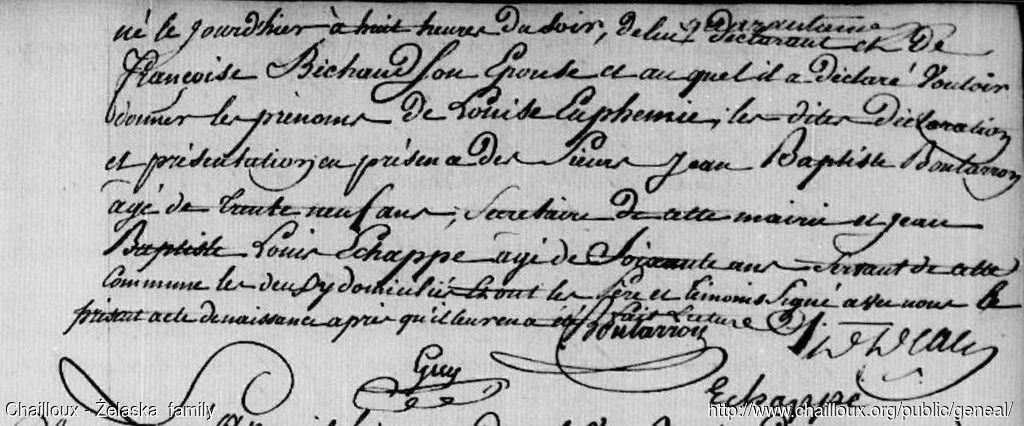 né le jourdhier à huit heures du soir, de lui déclarant et de
françoise Bichaud son Epouse et au quel il a déclaré Vouloir
donner les prénoms de Louise Euphemie, les dites déclaration
et présentation en présence des Sieurs Jean Baptiste Boutarron
agé de trente neuf ans, Secretaire de cette mairie et jean
Baptiste Louis Echappe agé de Soixante ans Servant de cette
Commune les deux y domiciliés les père et témoins Signé avec nous le
présent acte de naissance après qu'il leur en a été fait Lecture
Boutarron
Guy
Echappe
Chailloux - Żelaska family
http://www.chailloux.org/public/geneal/